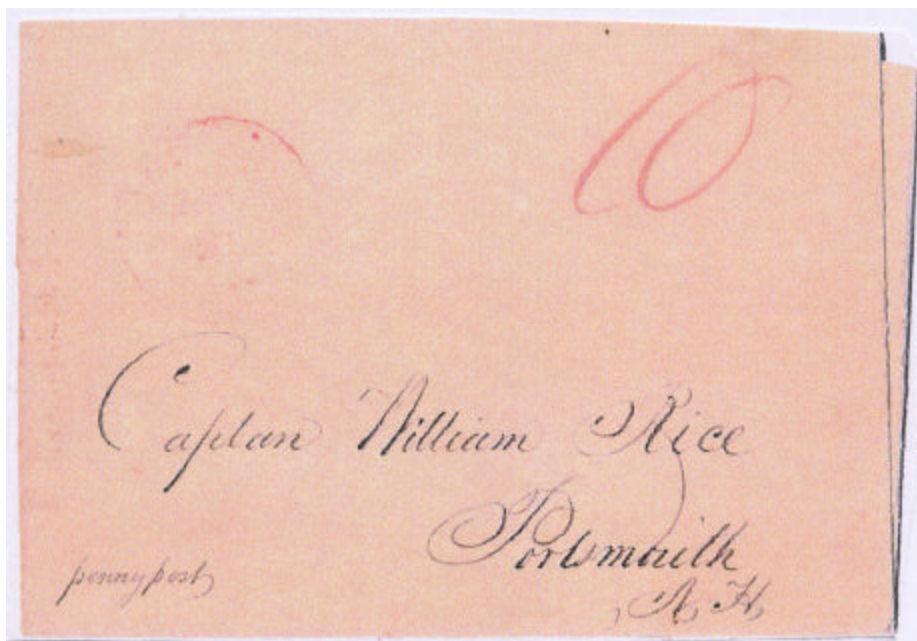 10
Captain William Rice
Portsmouth
N H
penny post